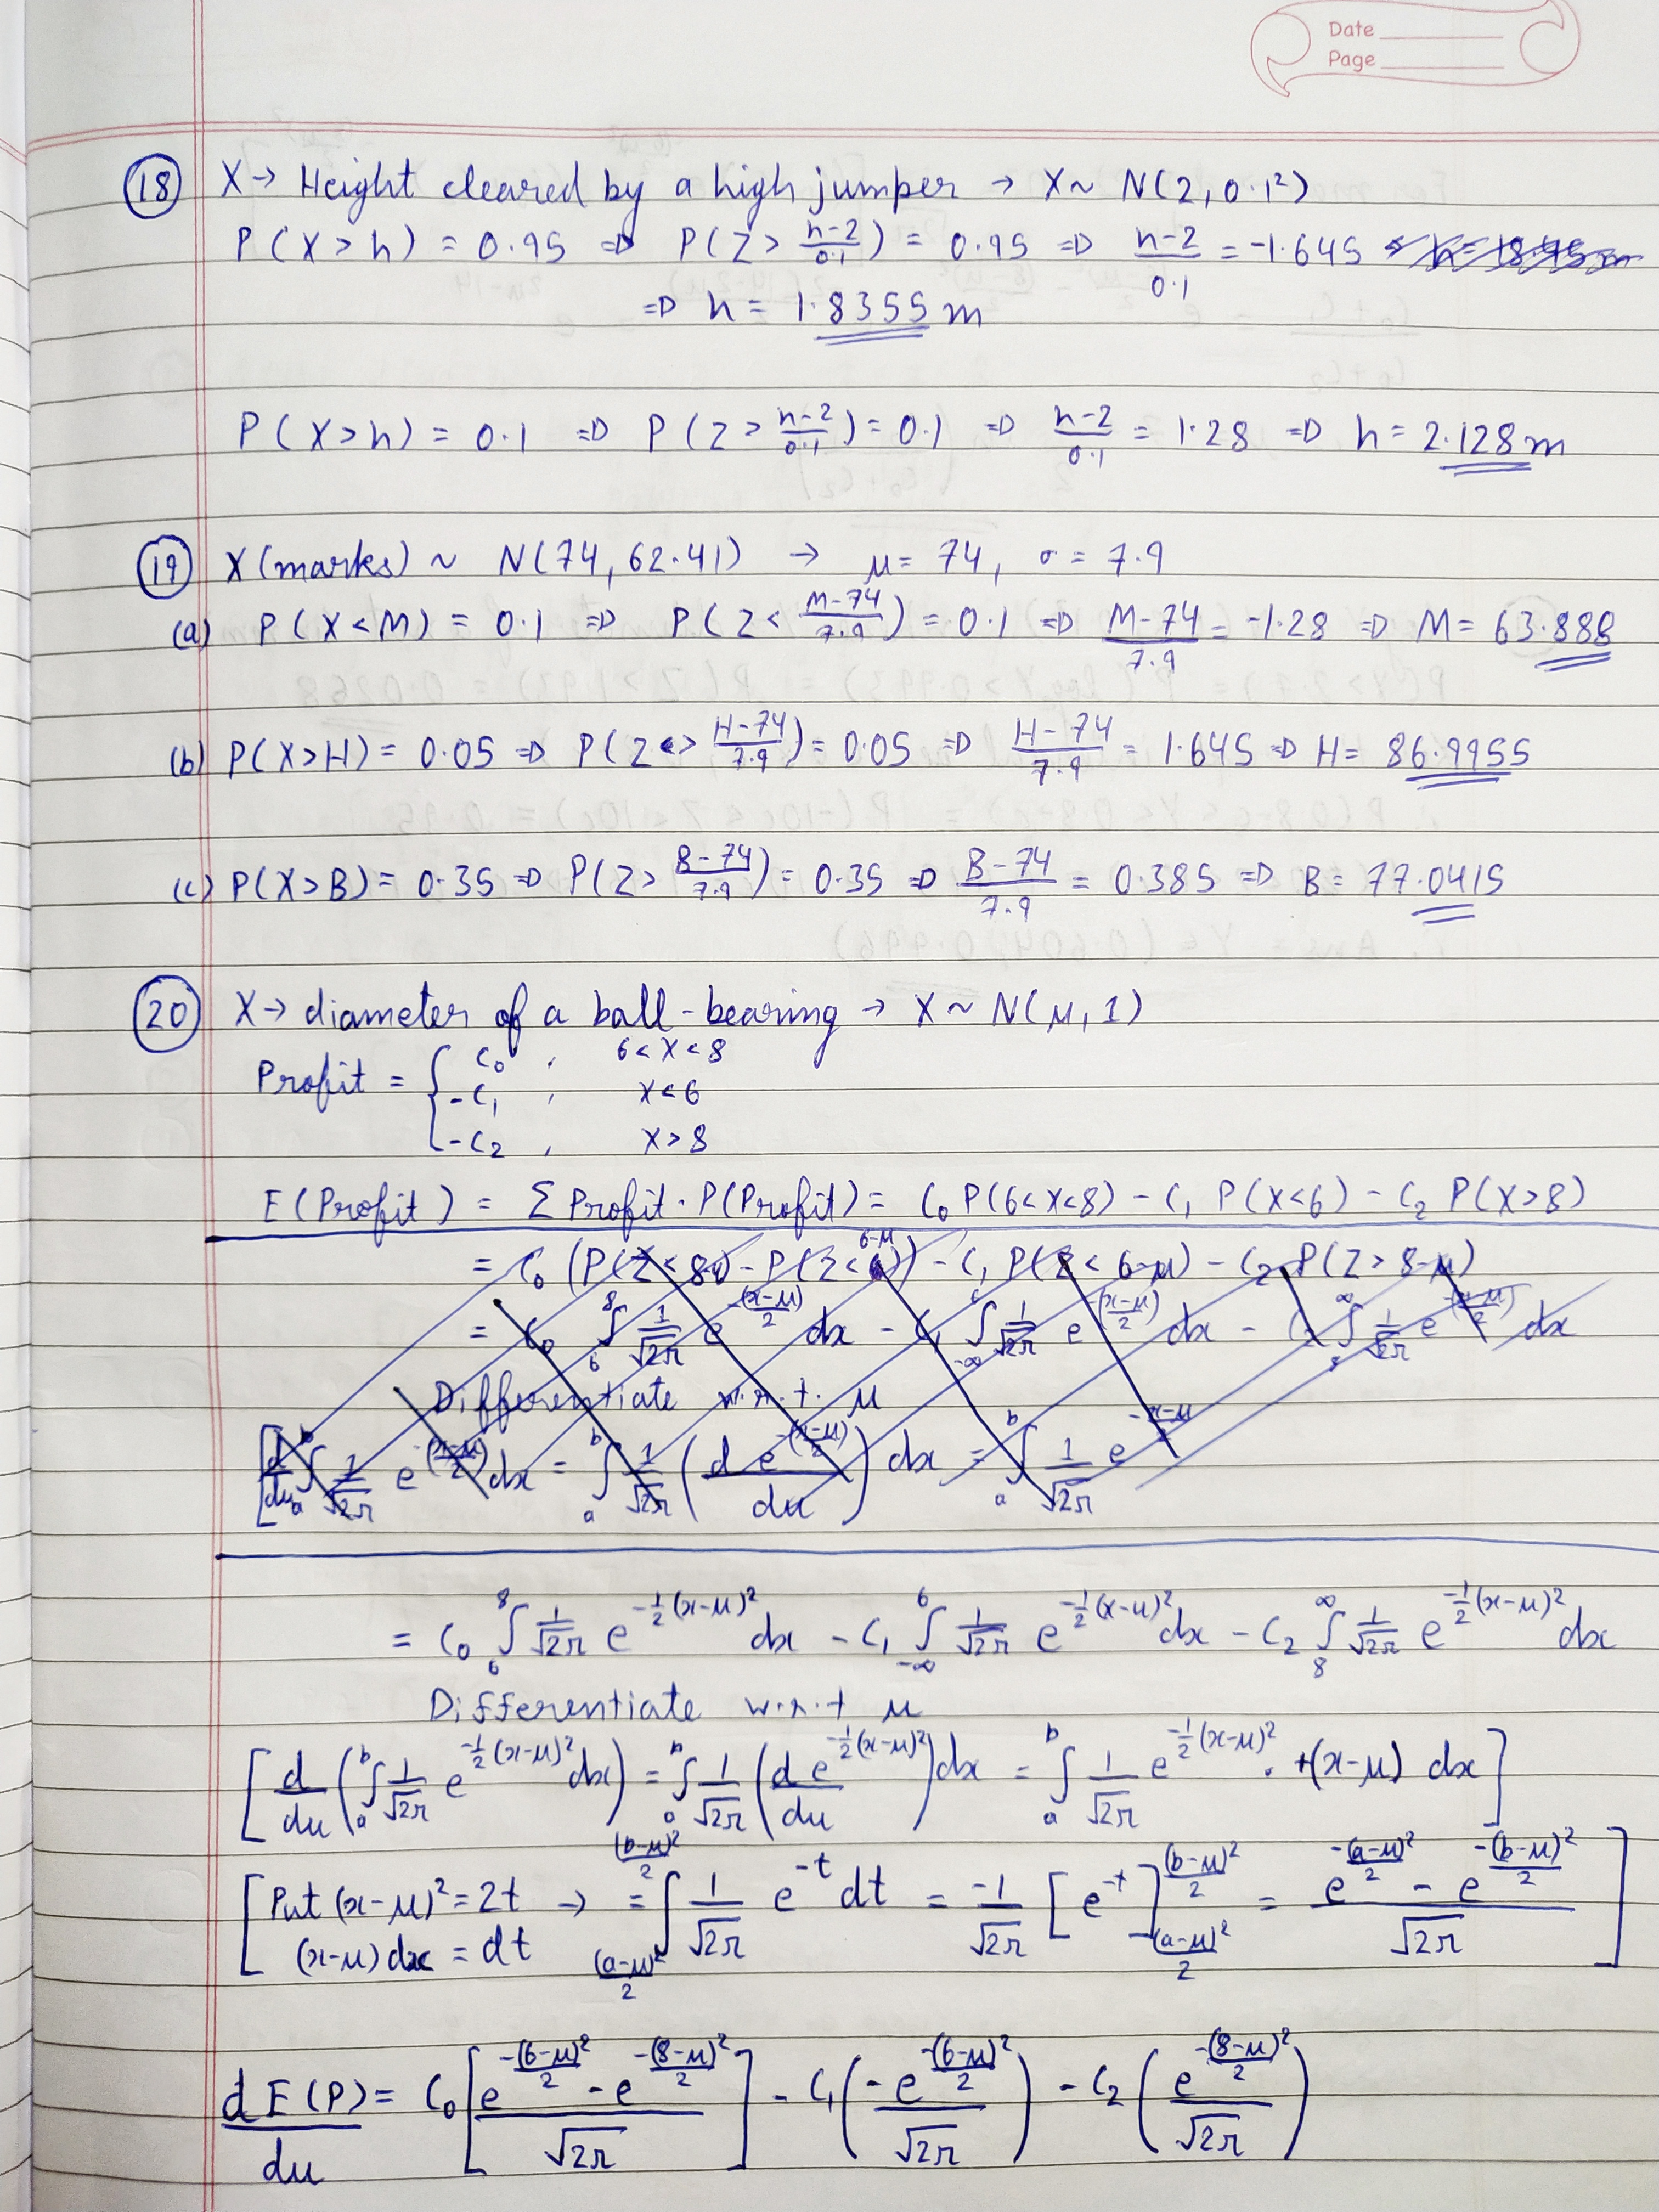 Date
Page
(18) X → Height cleared by a high jumper → X ~ N(2, 0.1²)
P(X > h) = 0.95 ⇒ P(Z > (h-2)/0.1) = 0.95 ⇒ (h-2)/0.1 = -1.645
⇒ h = 1.8355 m
P(X > h) = 0.1 ⇒ P(Z > (h-2)/0.1) = 0.1 ⇒ (h-2)/0.1 = 1.28 ⇒ h = 2.128 m
(19) X (marks) ~ N(74, 62.41) → μ = 74, σ = 7.9
(a) P(X < M) = 0.1 ⇒ P(Z < (M-74)/7.9) = 0.1 ⇒ (M-74)/7.9 = -1.28 ⇒ M = 63.888
(b) P(X > H) = 0.05 ⇒ P(Z > (H-74)/7.9) = 0.05 ⇒ (H-74)/7.9 = 1.645 ⇒ H = 86.9955
(c) P(X > B) = 0.35 ⇒ P(Z > (B-74)/7.9) = 0.35 ⇒ (B-74)/7.9 = 0.385 ⇒ B = 77.0415
(20) X → diameter of a ball-bearing → X ~ N(μ, 1)
Profit = { C₀ , 6 < X < 8
-C₁ , X < 6
-C₂ , X > 8
E(Profit) = Σ Profit · P(Profit) = C₀ P(6 < X < 8) - C₁ P(X < 6) - C₂ P(X > 8)
= C₀ ∫₆⁸ 1/√2π e^(-½(x-μ)²) dx - C₁ ∫₋∞⁶ 1/√2π e^(-½(x-μ)²) dx - C₂ ∫₈^∞ 1/√2π e^(-½(x-μ)²) dx
Differentiate w.r.t μ
[ d/du ( ∫ₐᵇ 1/√2π e^(-½(x-μ)²) dx ) = ∫ₐᵇ 1/√2π ( d e^(-½(x-μ)²)/du ) dx = ∫ₐᵇ 1/√2π e^(-½(x-μ)²) · +(x-μ) dx ]
[ Put (x-μ)² = 2t → = ∫_((a-μ)²/2)^((b-μ)²/2) 1/√2π e^(-t) dt = -1/√2π [e^(-t)]_((a-μ)²/2)^((b-μ)²/2) = (e^(-(a-μ)²/2) - e^(-(b-μ)²/2))/√2π ]
(x-μ) dx = dt
dE(P)/du = C₀ [ (e^(-(6-μ)²/2) - e^(-(8-μ)²/2))/√2π ] - C₁ ( -e^(-(6-μ)²/2)/√2π ) - C₂ ( e^(-(8-μ)²/2)/√2π )